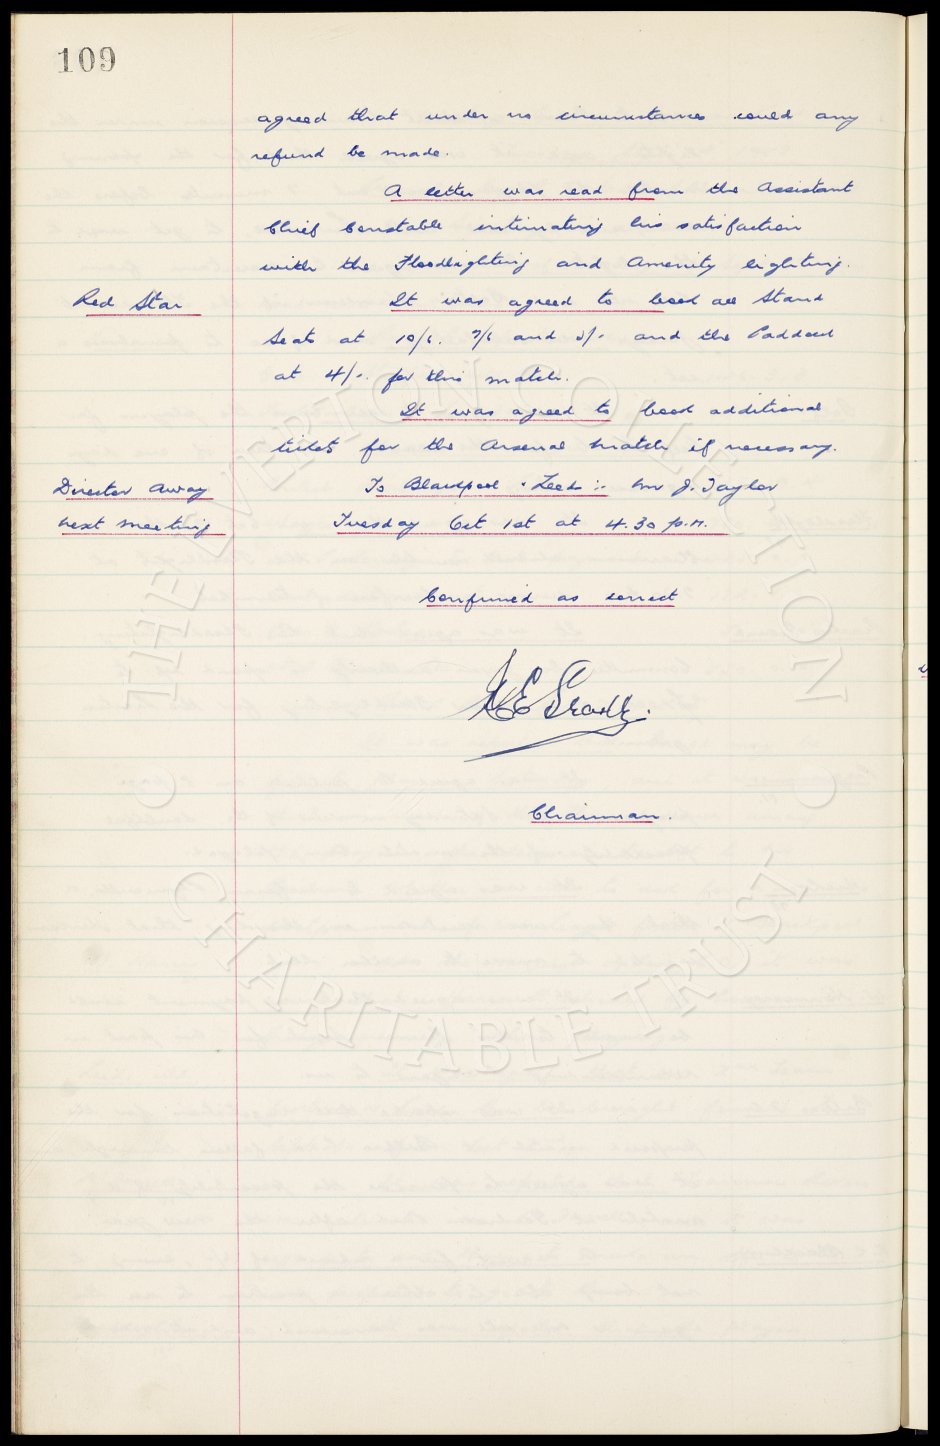 109
agreed that under no circumstances could any
refund be made.
A letter was read from the Assistant
Chief Constable intimating his satisfaction
with the Floodlighting and Amenity lighting.
Red Star It was agreed to book all Stand
Seats at 10/6. 7/6 and 5/- and the Paddock
at 4/-. for this match.
It was agreed to book additional
tickets for the Arsenal match if necessary.
Director Away To Blackpool & Leeds :- Mr J. Taylor
next meeting Tuesday Oct 1st at 4.30 p.m.
Confirmed as correct
Chairman.
THE EVERTON COLLECTION
CHARITABLE TRUST